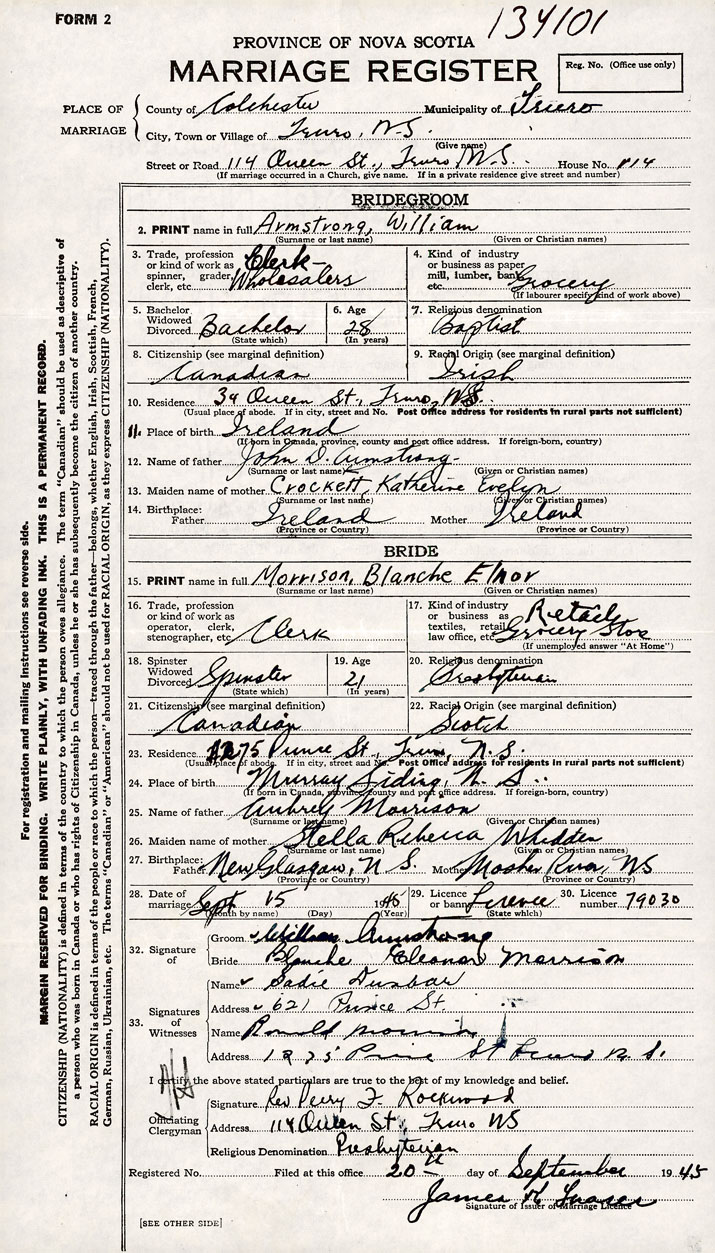 FORM 2
134101
PROVINCE OF NOVA SCOTIA
MARRIAGE REGISTER
Reg. No. (Office use only)
PLACE OF MARRIAGE
County of Colchester Municipality of Truro
City, Town or Village of Truro, N.S.
(Give name)
Street or Road 114 Queen St., Truro, N.S. House No. 114
(If marriage occurred in a Church, give name. If in a private residence give street and number)
BRIDEGROOM
2. PRINT name in full Armstrong, William
(Surname or last name) (Given or Christian names)
3. Trade, profession or kind of work as spinner, grader, clerk, etc. Clerk – Wholesalers
4. Kind of industry or business as paper mill, lumber, bank, etc. Grocery
(If labourer specify kind of work above)
5. Bachelor Widowed Divorced Bachelor
(State which)
6. Age 28
(In years)
7. Religious denomination
Baptist
8. Citizenship (see marginal definition)
Canadian
9. Racial Origin (see marginal definition)
Irish
10. Residence 39 Queen St., Truro, N.S.
(Usual place of abode. If in city, street and No. Post Office address for residents in rural parts not sufficient)
11. Place of birth Ireland
(If born in Canada, province, county and post office address. If foreign-born, country)
12. Name of father John D. Armstrong
(Surname or last name) (Given or Christian names)
13. Maiden name of mother Crockett, Katherine Evelyn
(Surname or last name) (Given or Christian names)
14. Birthplace: Father Ireland Mother Ireland
(Province or Country) (Province or Country)
BRIDE
15. PRINT name in full Morrison, Blanche Elnor
(Surname or last name) (Given or Christian names)
16. Trade, profession or kind of work as operator, clerk, stenographer, etc. Clerk
17. Kind of industry or business as textiles, retail, law office, etc. Retail Grocery Store
(If unemployed answer "At Home")
18. Spinster Widowed Divorced Spinster
(State which)
19. Age 21
(In years)
20. Religious denomination
Presbyterian
21. Citizenship (see marginal definition)
Canadian
22. Racial Origin (see marginal definition)
Scotch
23. Residence 1275 Prince St., Truro, N.S.
(Usual place of abode. If in city, street and No. Post Office address for residents in rural parts not sufficient)
24. Place of birth Murray Siding, N.S.
(If born in Canada, province, county and post office address. If foreign-born, country)
25. Name of father Aubrey Morrison
(Surname or last name) (Given or Christian names)
26. Maiden name of mother Stella Rebecca Whidden
(Surname or last name) (Given or Christian names)
27. Birthplace: Father New Glasgow, N.S. Mother Mosher River, NS
(Province or Country) (Province or Country)
28. Date of marriage Sept 15 1945
(Month by name) (Day) (Year)
29. Licence or banns Licence
(State which)
30. Licence number 79030
32. Signature of
Groom William Armstrong
Bride Blanche Eleanor Morrison
33. Signatures of Witnesses
Name Sadie Dunbar
Address 621 Prince St.
Name Ronald Morrison
Address 1275 Prince St Truro N.S.
I certify the above stated particulars are true to the best of my knowledge and belief.
Officiating Clergyman
Signature Rev Perry F. Rockwood
Address 114 Queen St., Truro NS
Religious Denomination Presbyterian
Registered No. Filed at this office 20th day of September 1945
James
Signature of Issuer of Marriage Licence
[SEE OTHER SIDE]
For registration and mailing instructions see reverse side.
MARGIN RESERVED FOR BINDING. WRITE PLAINLY, WITH UNFADING INK. THIS IS A PERMANENT RECORD.
CITIZENSHIP (NATIONALITY) is defined in terms of the country to which the person owes allegiance. The term "Canadian" should be used as descriptive of
a person who was born in Canada or who has rights of Citizenship in Canada, unless he or she has subsequently become the citizen of another country.
RACIAL ORIGIN is defined in terms of the people or race to which the person—traced through the father—belongs, whether English, Irish, Scottish, French,
German, Russian, Ukrainian, etc. The terms "Canadian" or "American" should not be used for RACIAL ORIGIN, as they express CITIZENSHIP (NATIONALITY).